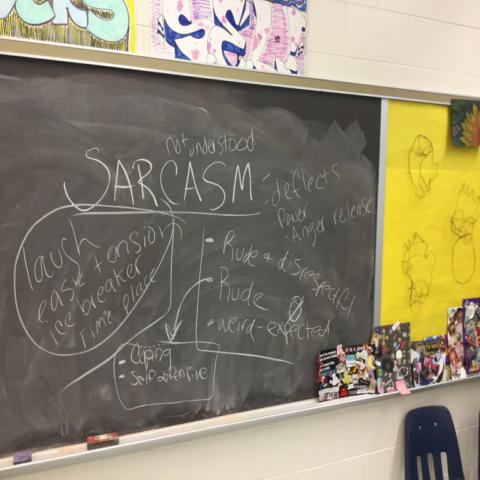 not understood
SARCASM
- deflects
- Power
- Anger release
laugh
ease tension
ice breaker
Time place
• Rude + disrespectful
Rude
• weird - expected
• Coping